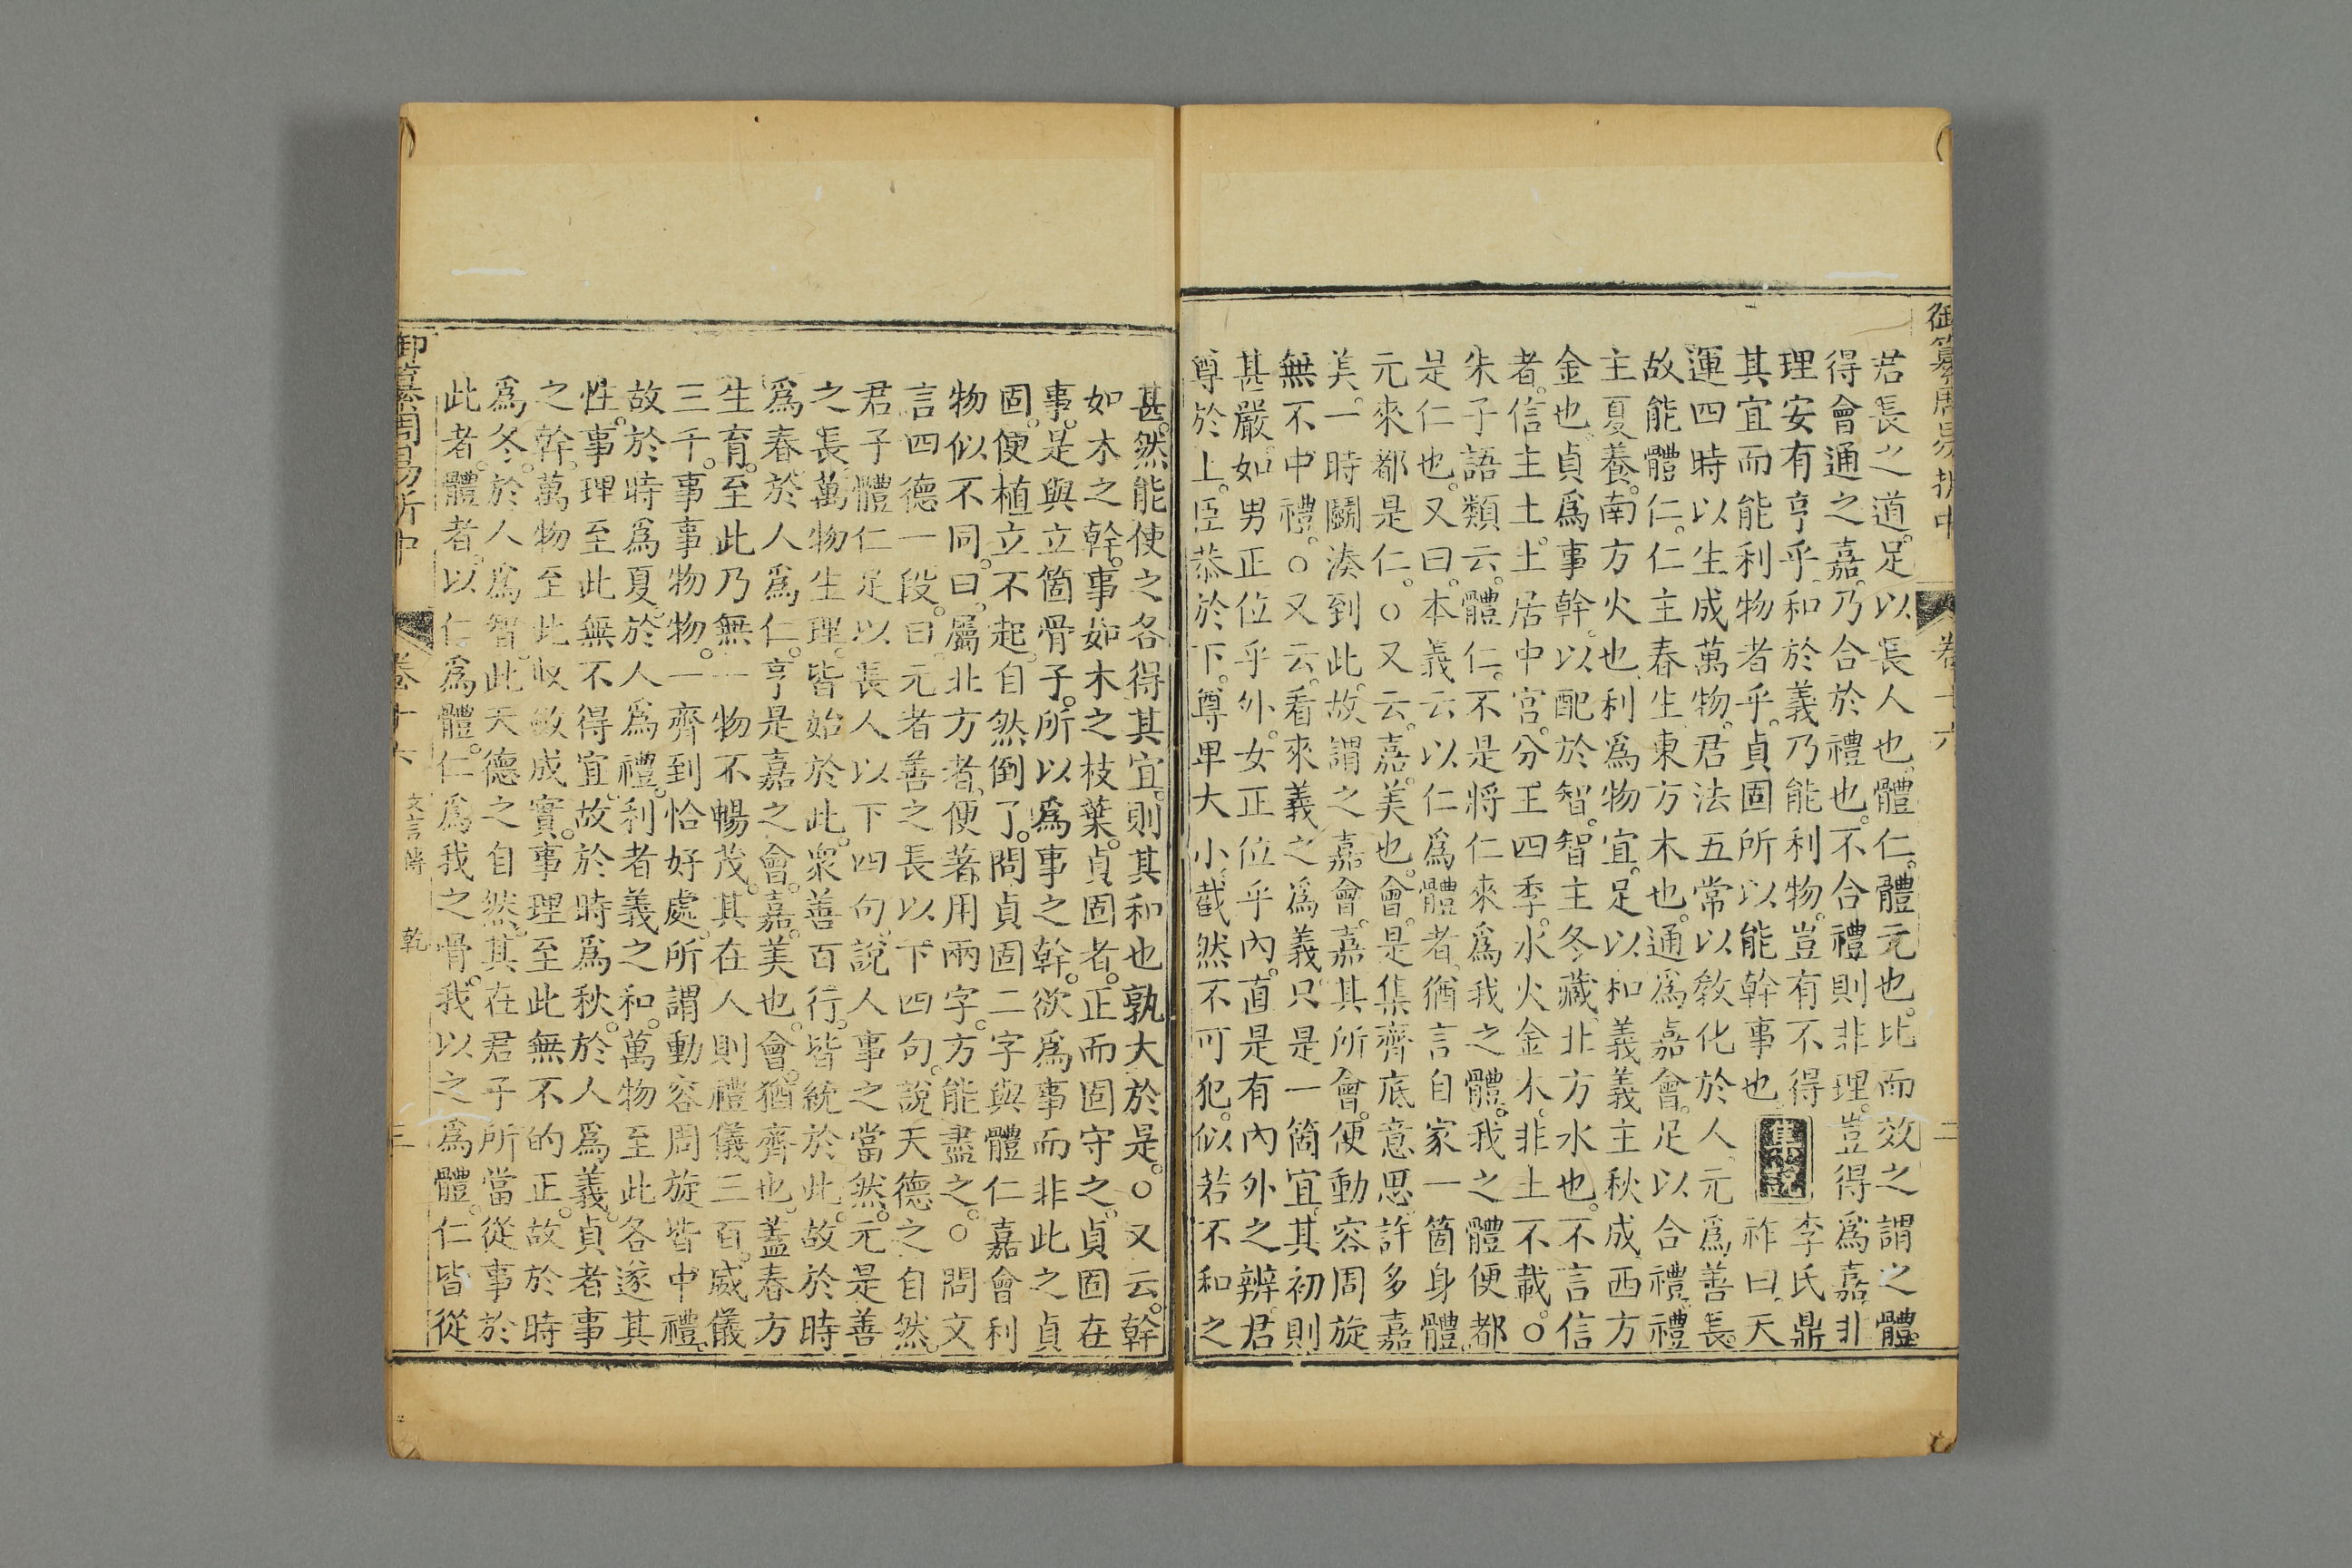 御纂周易折中
卷十六
二
君長之道足以長人也體仁體元也比而效之謂之體
得會通之嘉乃合於禮也不合禮則非理豈得爲嘉非
理安有亨乎和於義乃能利物豈有不得
其宜而能利物者乎貞固所以能幹事也
集說
李氏鼎
祚曰天
運四時以生成萬物君法五常以教化於人元爲善長
故能體仁仁主春生東方木也通爲嘉會足以合禮禮
主夏養南方火也利爲物宜足以和義義主秋成西方
金也貞爲事幹以配於智智主冬藏北方水也不言信
者信主土土居中宮分王四季水火金木非土不載○
朱子語類云體仁不是將仁來爲我之體我之體便都
是仁也又曰本義云以仁爲體者猶言自家一箇身體
元來都是仁○又云嘉美也會是集齊底意思許多嘉
美一時鬬湊到此故謂之嘉會嘉其所會便動容周旋
無不中禮○又云看來義之爲義只是一箇宜其初則
甚嚴如男正位乎外女正位乎內直是有內外之辨君
尊於上臣恭於下尊卑大小截然不可犯似若不和之
甚然能使之各得其宜則其和也孰大於是○又云幹
如木之幹事如木之枝葉貞固者正而固守之貞固在
事是與立箇骨子所以爲事之幹欲爲事而非此之貞
固便植立不起自然倒了問貞固二字與體仁嘉會利
物似不同曰屬北方者便著用兩字方能盡之○問文
言四德一段曰元者善之長以下四句說天德之自然
君子體仁足以長人以下四句說人事之當然元是善
之長萬物生理皆始於此衆善百行皆統於此故於時
爲春於人爲仁亨是嘉之會嘉美也會猶齊也蓋春方
生育至此乃無一物不暢茂其在人則禮儀三百威儀
三千事事物物一齊到恰好處所謂動容周旋皆中禮
故於時爲夏於人爲禮利者義之和萬物至此各遂其
性事理至此無不得宜故於時爲秋於人爲義貞者事
之幹萬物至此收斂成實事理至此無不的正故於時
爲冬於人爲智此天德之自然其在君子所當從事於
此者體者以仁爲體仁爲我之骨我以之爲體仁皆從
御纂周易折中
卷十六
文言傳
乾
三